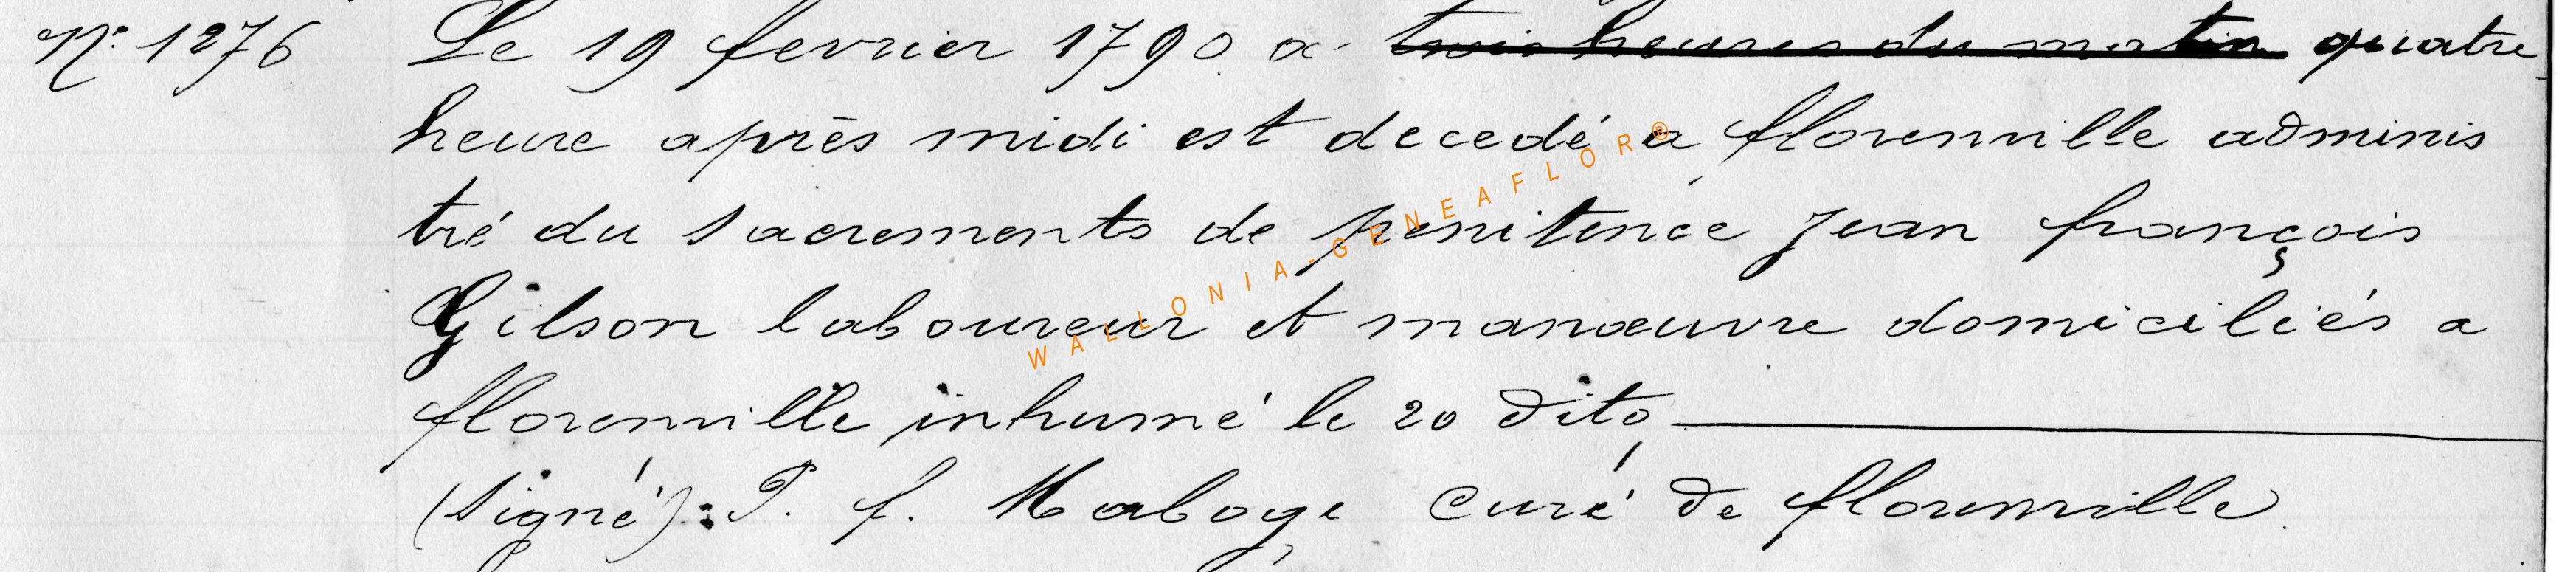 N° 1276 Le 19 fevrier 1790 a trois heures du matin quatre
heure après midi est decedé a florenville adminis
tré du sacrements de penitence Jean françois
Gilson laboureur et manœuvre domiciliés a
florenville inhumé le 20 dito
(signé): P. f. Maboge curé de florenville
WALLONIA-GENEAFLOR®